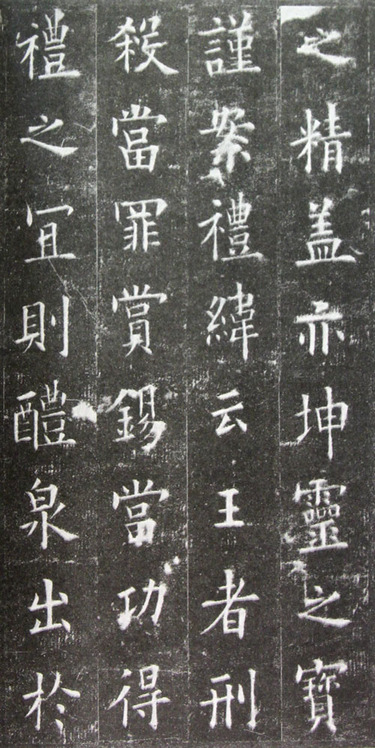 之精盖亦坤靈之寶
謹案禮緯云王者刑
殺當罪賞錫當功得
禮之宜則醴泉出於